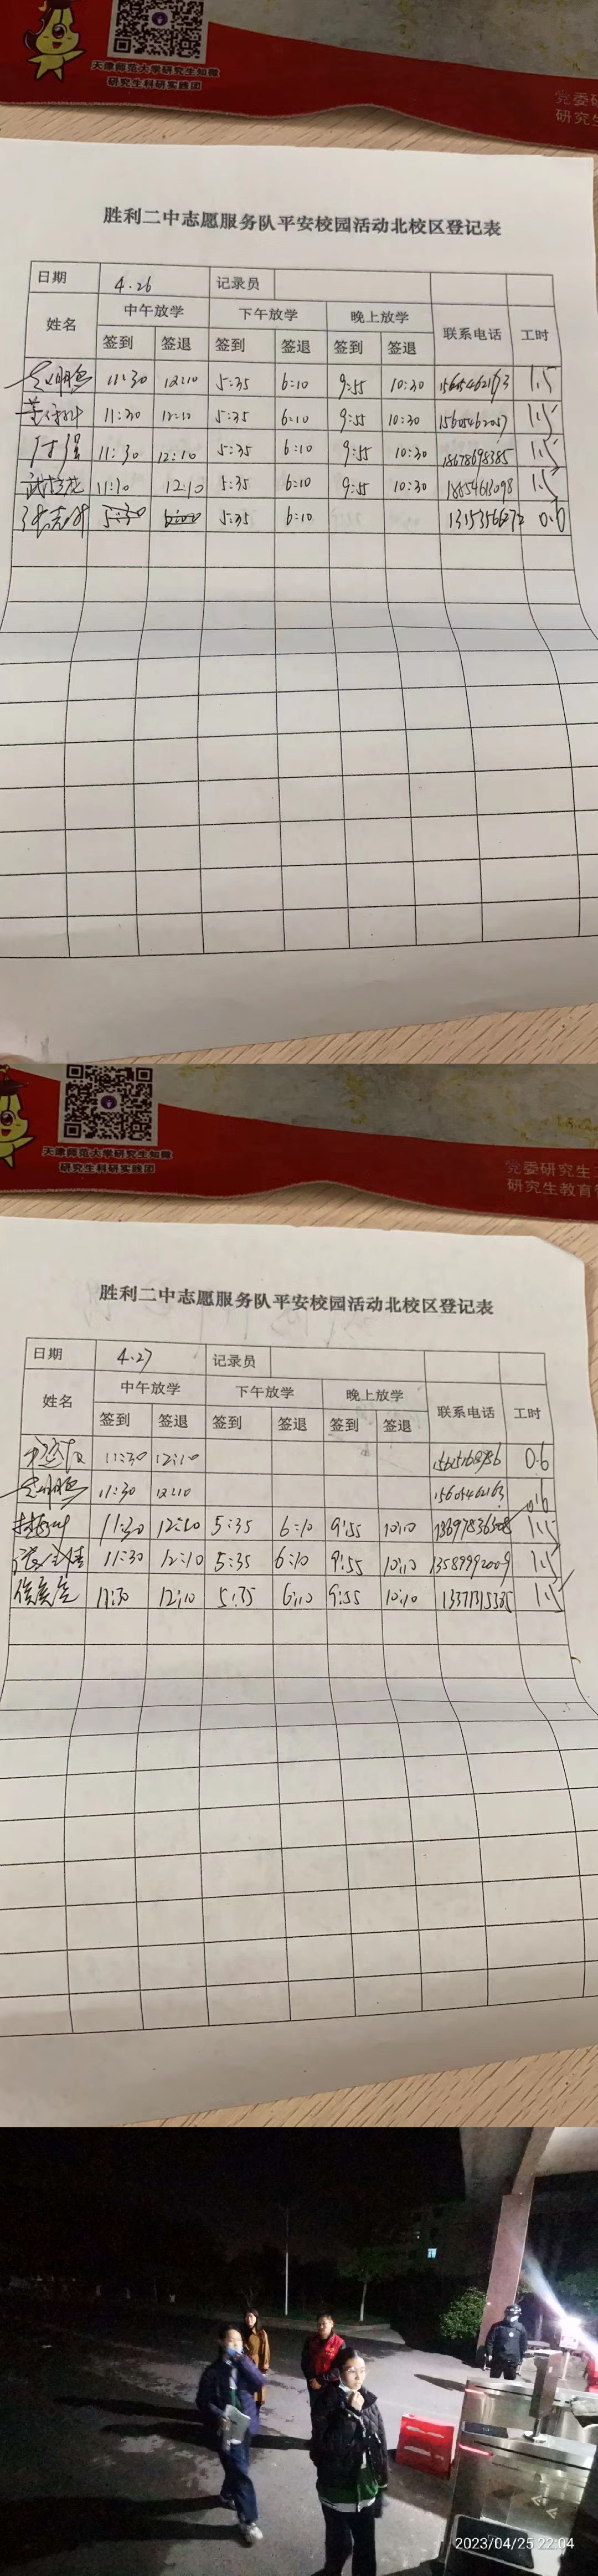 天津师范大学研究生知微
研究生科研实践团
党委研
研究生
胜利二中志愿服务队平安校园活动北校区登记表
日期 4.26 记录员
姓名 中午放学 下午放学 晚上放学 联系电话 工时
签到 签退 签到 签退 签到 签退
11:30 12:10 5:35 6:10 9:55 10:30 1.5
11:30 12:10 5:35 6:10 9:55 10:30 1.5
付强 11:30 12:10 5:35 6:10 9:55 10:30 18678698385 1.5
11:30 12:10 5:35 6:10 9:55 10:30 1.5
5:35 6:10 0.6
天津师范大学研究生知微
研究生科研实践团
党委研究生工
研究生教育管
胜利二中志愿服务队平安校园活动北校区登记表
日期 4.27 记录员
姓名 中午放学 下午放学 晚上放学 联系电话 工时
签到 签退 签到 签退 签到 签退
11:30 12:10 0.6
11:30 12:10 0.6
11:30 12:10 5:35 6:10 9:55 10:10 1.5
11:30 12:10 5:35 6:10 9:55 10:10 13589992009 1.5
11:30 12:10 5:35 6:10 9:55 10:10 13371315385 1.5
2023/04/25 22:04